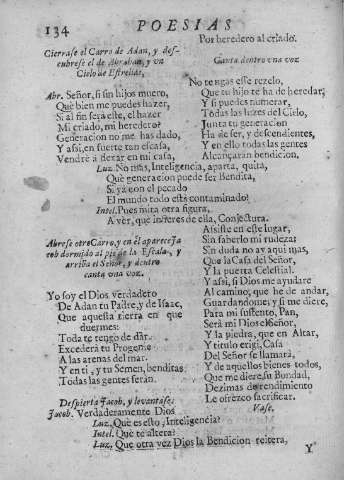 134
POESIAS
Cierrase el Carro de Adan, y des-
cubrese el de Abraham, y un
Cielo de Estrellas,
Abr. Señor, si sin hijos muero,
Què bien me puedes hazer,
Si al fin será este, el hazer
Mi criado, mi heredero?
Generacion no me has dado,
Y assi, en fuerte tan escasa,
Vendrè a dexar en mi casa,
Por heredero al criado.
Canta dentro una voz
No tengas esse rezelo,
Que tu hijo te ha de heredar;
Y si puedes numerar,
Todas las luzes del Cielo,
Junta tu generacion
Ha de ser, y descendientes,
Y en ello todas las gentes
Alcançaràn bendicion,
Luz. No niñas, Inteligencia, aparta, quita,
Què generacion puede ser bendita,
Si ya con el pecado
El mundo todo està contaminado?
Intel. Pues mira otra figura,
A ver, què infieres de ella, Conjectura.
Abrese otro Carro, y en èl aparece Ja-
cob dormido al pie de la Escala, y
arriba el Señor, y dentro
canta una voz.
Yo soy el Dios verdadero
De Adan tu Padre, y de Isaac,
Que aquesta tierra en que
duermes:
Toda te tengo de dàr.
Excederà tu Progenie
A las arenas del mar.
Y en ti, y tu Semen, benditas
Todas las gentes seràn.
Despierta Jacob, y levantase;
Jacob. Verdaderamente Dios
Assiste en este lugar,
Sin saberlo mi rudeza;
Sin duda no ay aqui mas,
Que la Casa del Señor,
Y la puerta Celestial.
Y assi, si Dios me ayudare
Al camino, que he de andar,
Guardandome; y si me diere,
Para mi sustento, Pan,
Serà mi Dios el Señor,
Y la piedra, que en Altar,
Y titulo erigì, Casa
Del Señor se llamarà,
Y de aquellos bienes todos,
Que me diere su Bondad,
Dezimas de rendimiento
Le ofrezco sacrificar.
Vase.
Luz, Què es esto, Inteligencia?
Intel. Què te altera?
Luz, Que otra vez Dios la Bendicion reitera,
Y